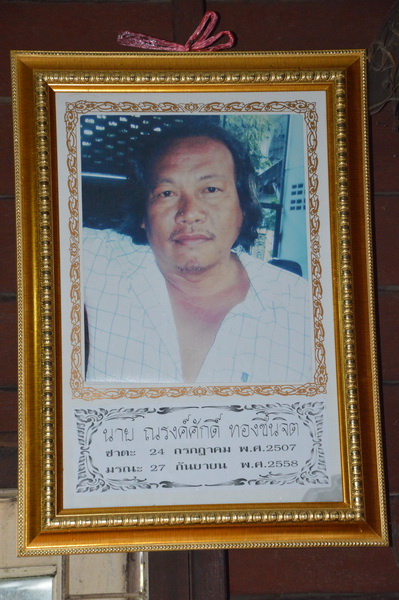 นาย ณรงค์ศักดิ์ ทองชินจิต
ชาตะ 24 กรกฎาคม พ.ศ.2507
มรณะ 27 กันยายน พ.ศ.2558